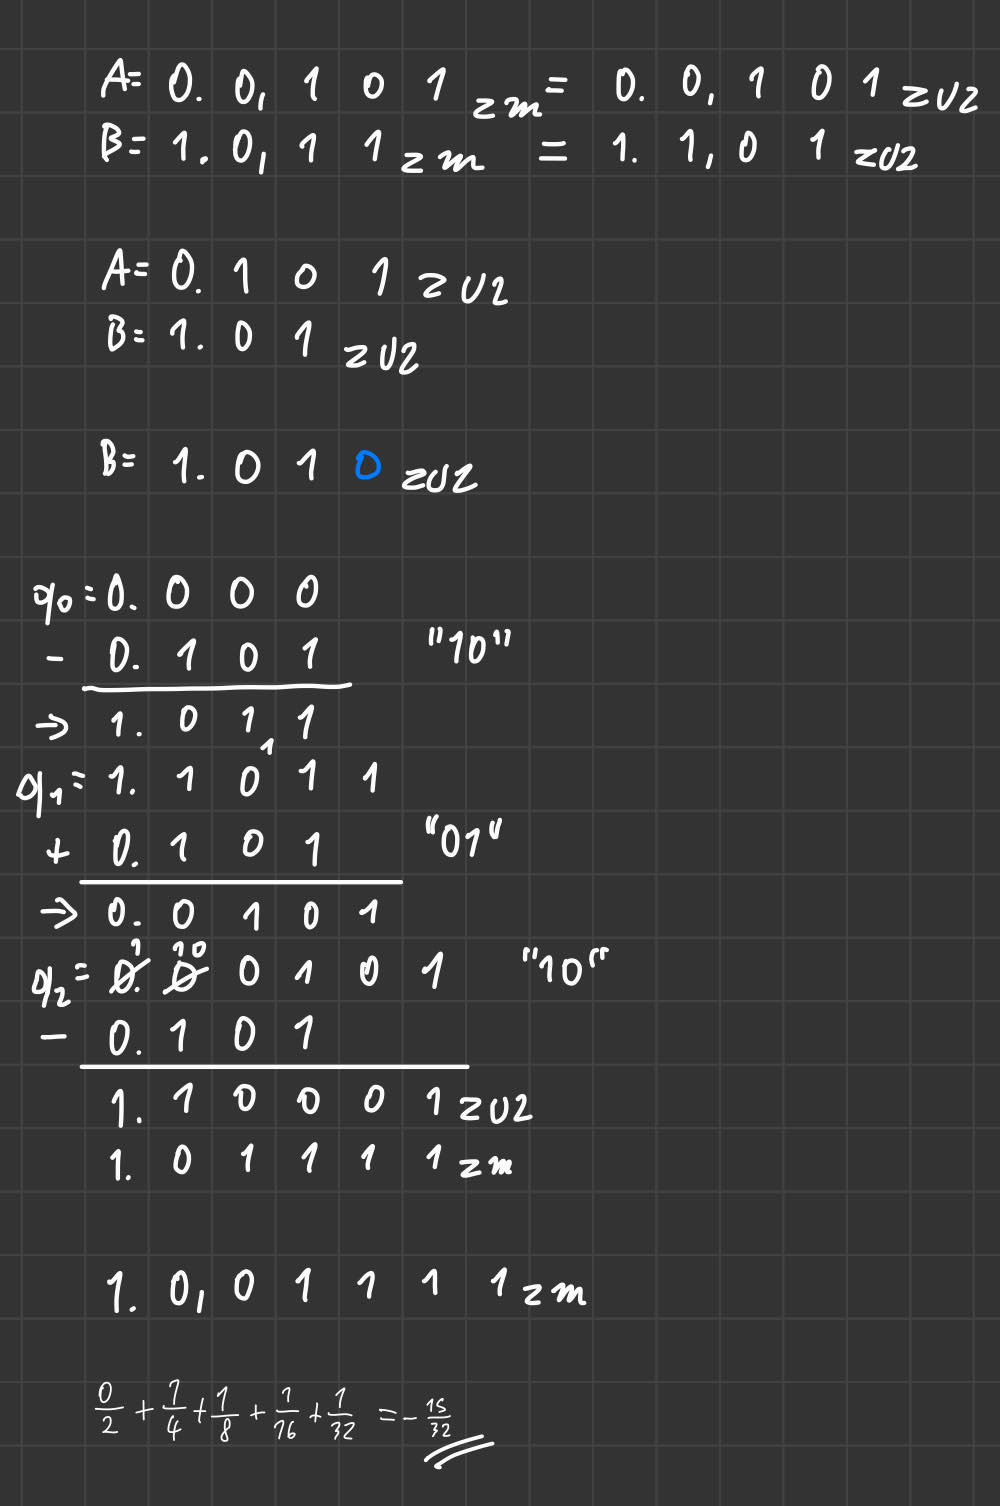 A= 0. 0, 1 0 1 zm = 0. 0, 1 0 1 zU2
B= 1. 0, 1 1 zm = 1. 1, 0 1 zU2
A= 0. 1 0 1 zU2
B= 1. 0 1 zU2
B= 1. 0 1 0 zU2
q0 = 0. 0 0 0
- 0. 1 0 1 "10"
→ 1. 0 1 1
1
q1 = 1. 1 0 1 1
+ 0. 1 0 1 "01"
→ 0. 0 1 0 1
1 1 0
q2 = 0. 0 0 1 0 1 "10"
- 0. 1 0 1
1. 1 0 0 0 1 zU2
1. 0 1 1 1 1 zm
1. 0, 0 1 1 1 1 zm
0/2 + 1/4 + 1/8 + 1/16 + 1/32 = - 15/32